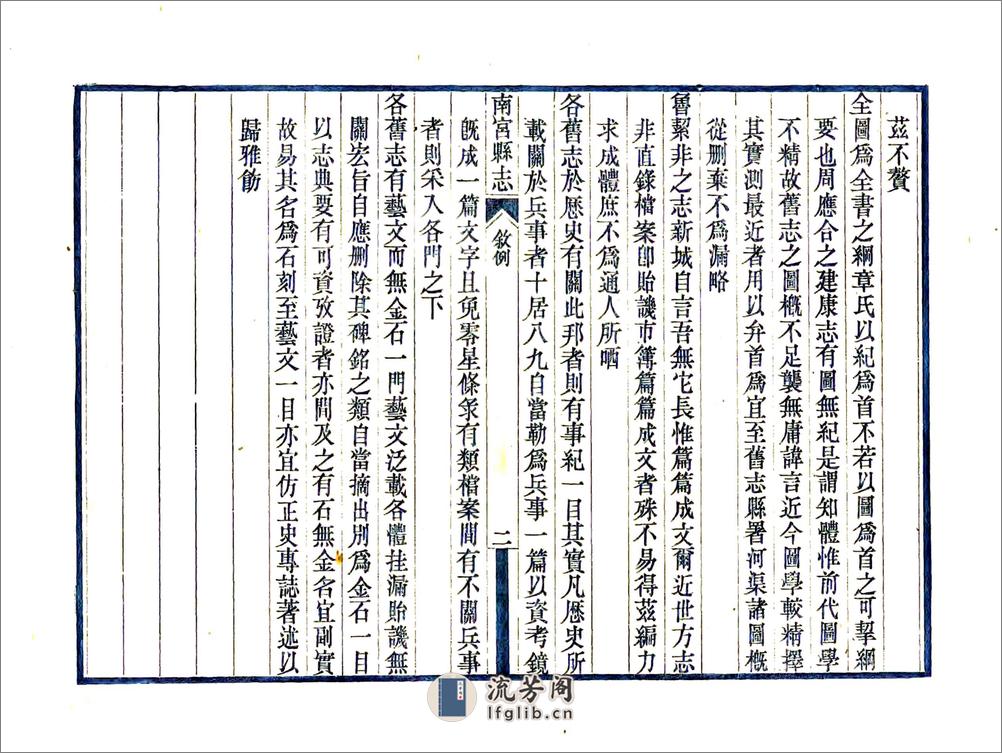 茲不贅
全圖爲全書之綱章氏以紀爲首不若以圖爲首之可挈綱
要也周應合之建康志有圖無紀是謂知體惟前代圖學
不精故舊志之圖槪不足襲無庸諱言近今圖學較精擇
其實測最近者用以弁首爲宜至舊志縣署河渠諸圖槪
從刪棄不爲漏略
魯絜非之志新城自言吾無它長惟篇篇成文爾近世方志
非直錄檔案卽貽譏市簿篇篇成文者殊不易得茲編力
求成體庶不爲通人所哂
各舊志於歷史有關此邦者則有事紀一目其實凡歷史所
載關於兵事者十居八九自當勒爲兵事一篇以資考鏡
南宮縣志
敘例
二
旣成一篇文字且免零星條彔有類檔案間有不關兵事
者則采入各門之下
各舊志有藝文而無金石一門藝文泛載各體挂漏貽譏無
關宏旨自應刪除其碑銘之類自當摘出別爲金石一目
以志典要有可資攷證者亦間及之有石無金名宜副實
故易其名爲石刻至藝文一目亦宜仿正史專誌著述以
歸雅飭
流芳阁
lfglib.cn